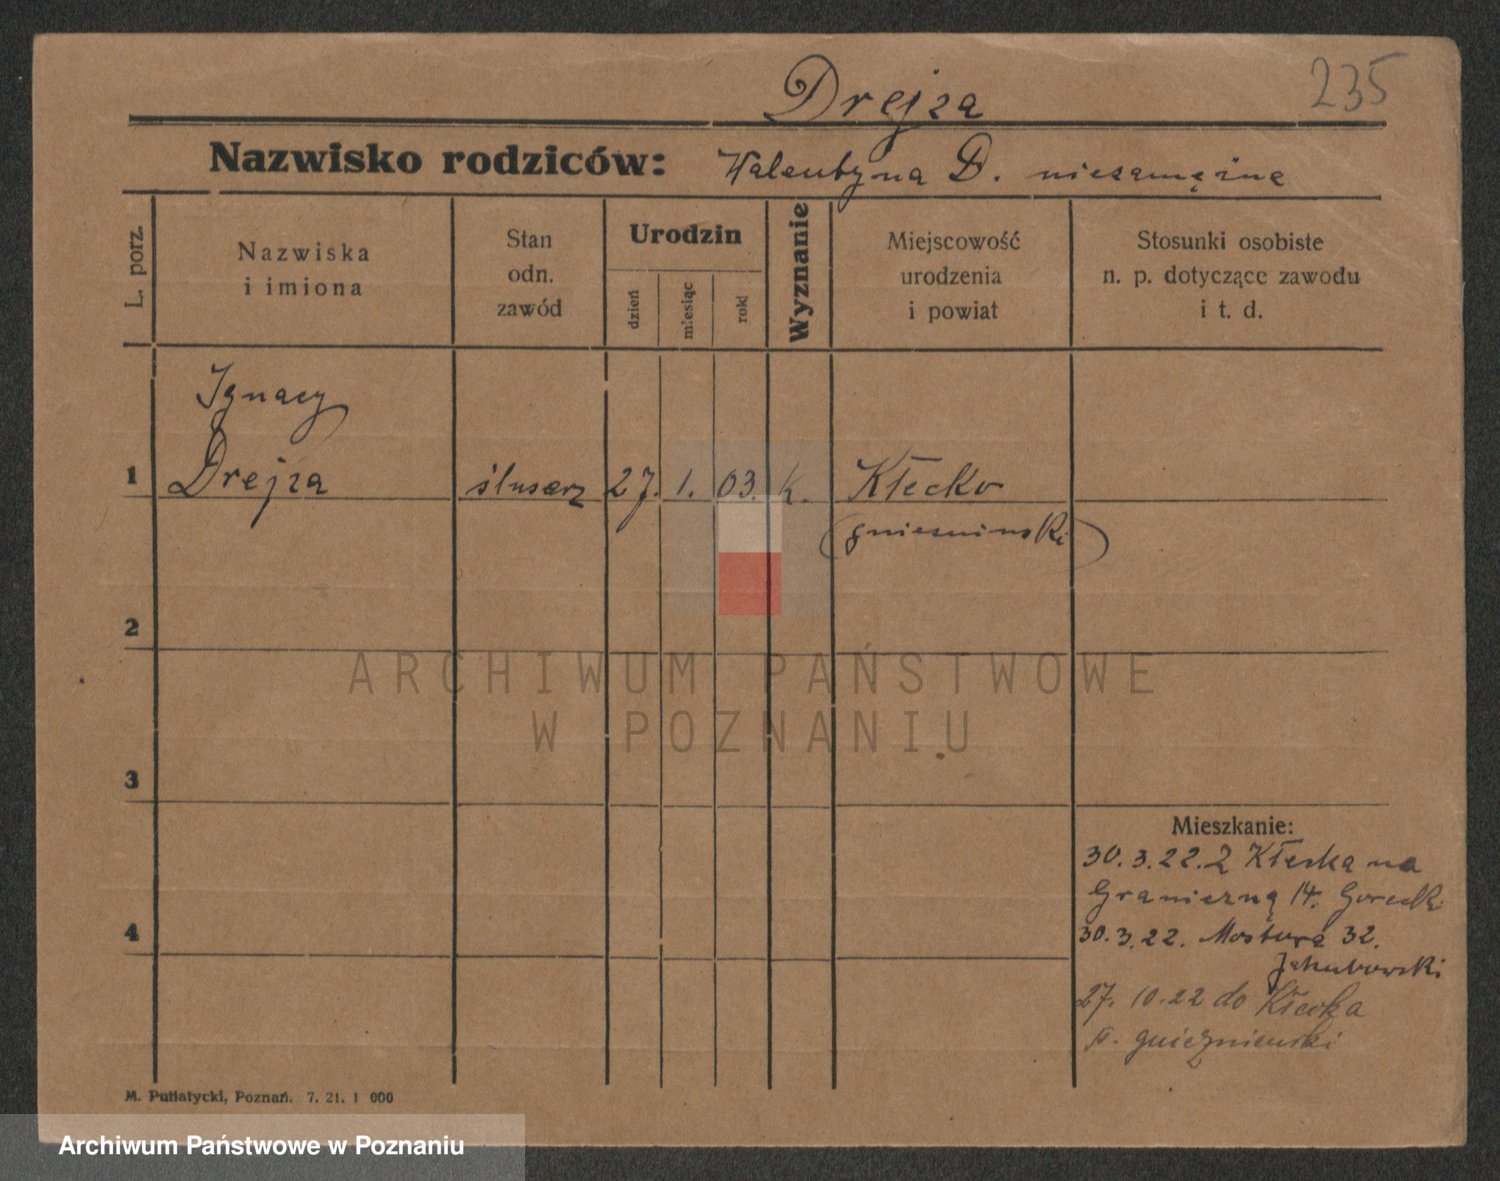 Drejza
235
Nazwisko rodziców: Walentyna D. niezamężna
L. porz.
Nazwiska
i imiona
Stan
odn.
zawód
Urodzin
dzień
miesiąc
rok
Wyznanie
Miejscowość
urodzenia
i powiat
Stosunki osobiste
n. p. dotyczące zawodu
i t. d.
Ignacy
1 Drejza ślusarz 27. 1. 03. k. Kłecko
(gniezninski)
2
3
4
Mieszkanie:
30.3.22. Z Kłecka na
Graniczną 14. Gorecki
30.3.22. Mostowa 32.
Jakubowski
27. 10.22 do Kłecka
p. gnieźnienski
M. Putiatycki, Poznań. 7. 21. 1 000
ARCHIWUM PAŃSTWOWE
W POZNANIU
Archiwum Państwowe w Poznaniu